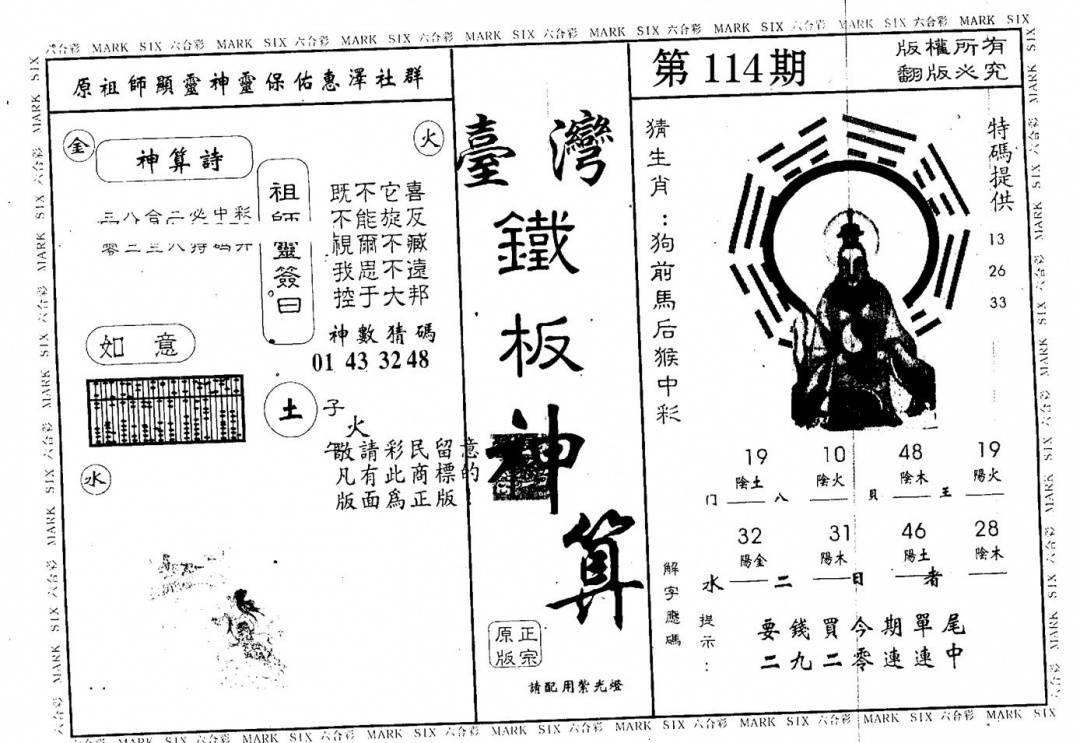 六合彩 MARK SIX 六合彩 MARK SIX 六合彩 MARK SIX 六合彩 MARK SIX 六合彩 MARK SIX 六合彩 MARK SIX 六合彩 MARK SIX 六合彩 MARK SIX
原祖師顯靈神靈保佑惠澤社群
金
神算詩
火
三八合二必中彩
祖師靈簽曰
既不它喜
不能旋反
視爾不臧
我思不遠
控于大邦
神數猜碼
01 43 32 48
如意
土
子
火
午
水
敬請彩民留意
凡有此商標的
版面為正版！
臺灣
鐵板神算
原正
版宗
請配用紫光燈
第114期
版權所有
翻版必究
猜生肖：狗前馬后猴中彩
特碼提供
13
26
33
19 10 48 19
陰土 陰火 陰木 陽火
门 八 貝 王
32 31 46 28
陽金 陽木 陽土 陰木
水 二 日 者
解字應碼
提示：
要錢買今期單尾
二九二零連連中